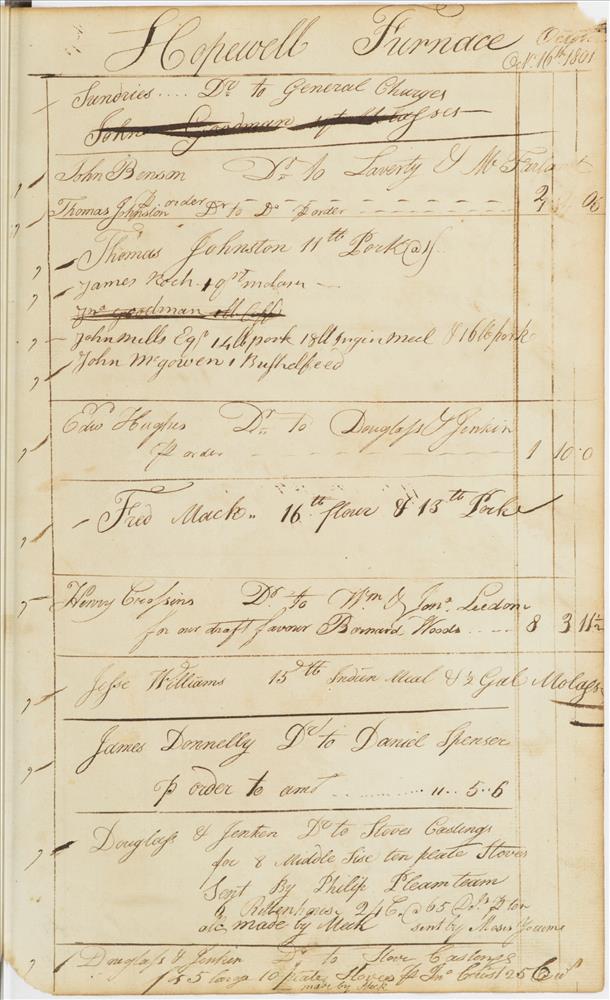 Hopewell Furnace
Octr. 16th 1801
Sundries .... Dr. to General Charges
John Goodman
John Benson Dr. to Laverty & Mc
p order
Thomas Johnston Dr to Do p order 2 06
Thomas Johnston 11 lb Pork @ 1/
James Koch 1 qrt molass
Jno Goodman
John Mills Eqr 14 lb pork 18 lb Ingin meal & 16 lb pork
John McGowen 1 Bushel feed
Edw Hughes Dr. to Douglass & Jenkin
p order 1 10 0
Fred Mack 16 lb flour & 13 lb Pork
Henry Crossins Dr to Wm & Jona. Leedom
for our draft favour Bernard Woods ..... 8 3 11½
Jesse Williams 15 lb Indien Meal & ½ Gal Molass
James Donnelly Dr to Daniel Spenser
p order to amt .......... 11 .. 5 .. 6
Douglass & Jenken Dr to Stoves Castings
for 8 Middle Sise ten plate Stoves
Sent By Philip Pleam team
made by Meek sent by Moses Yocums
Douglass & Jenken Dr to Stove Castings
for 5 large 10 plate Stoves p Jno 25 C
made by Meek